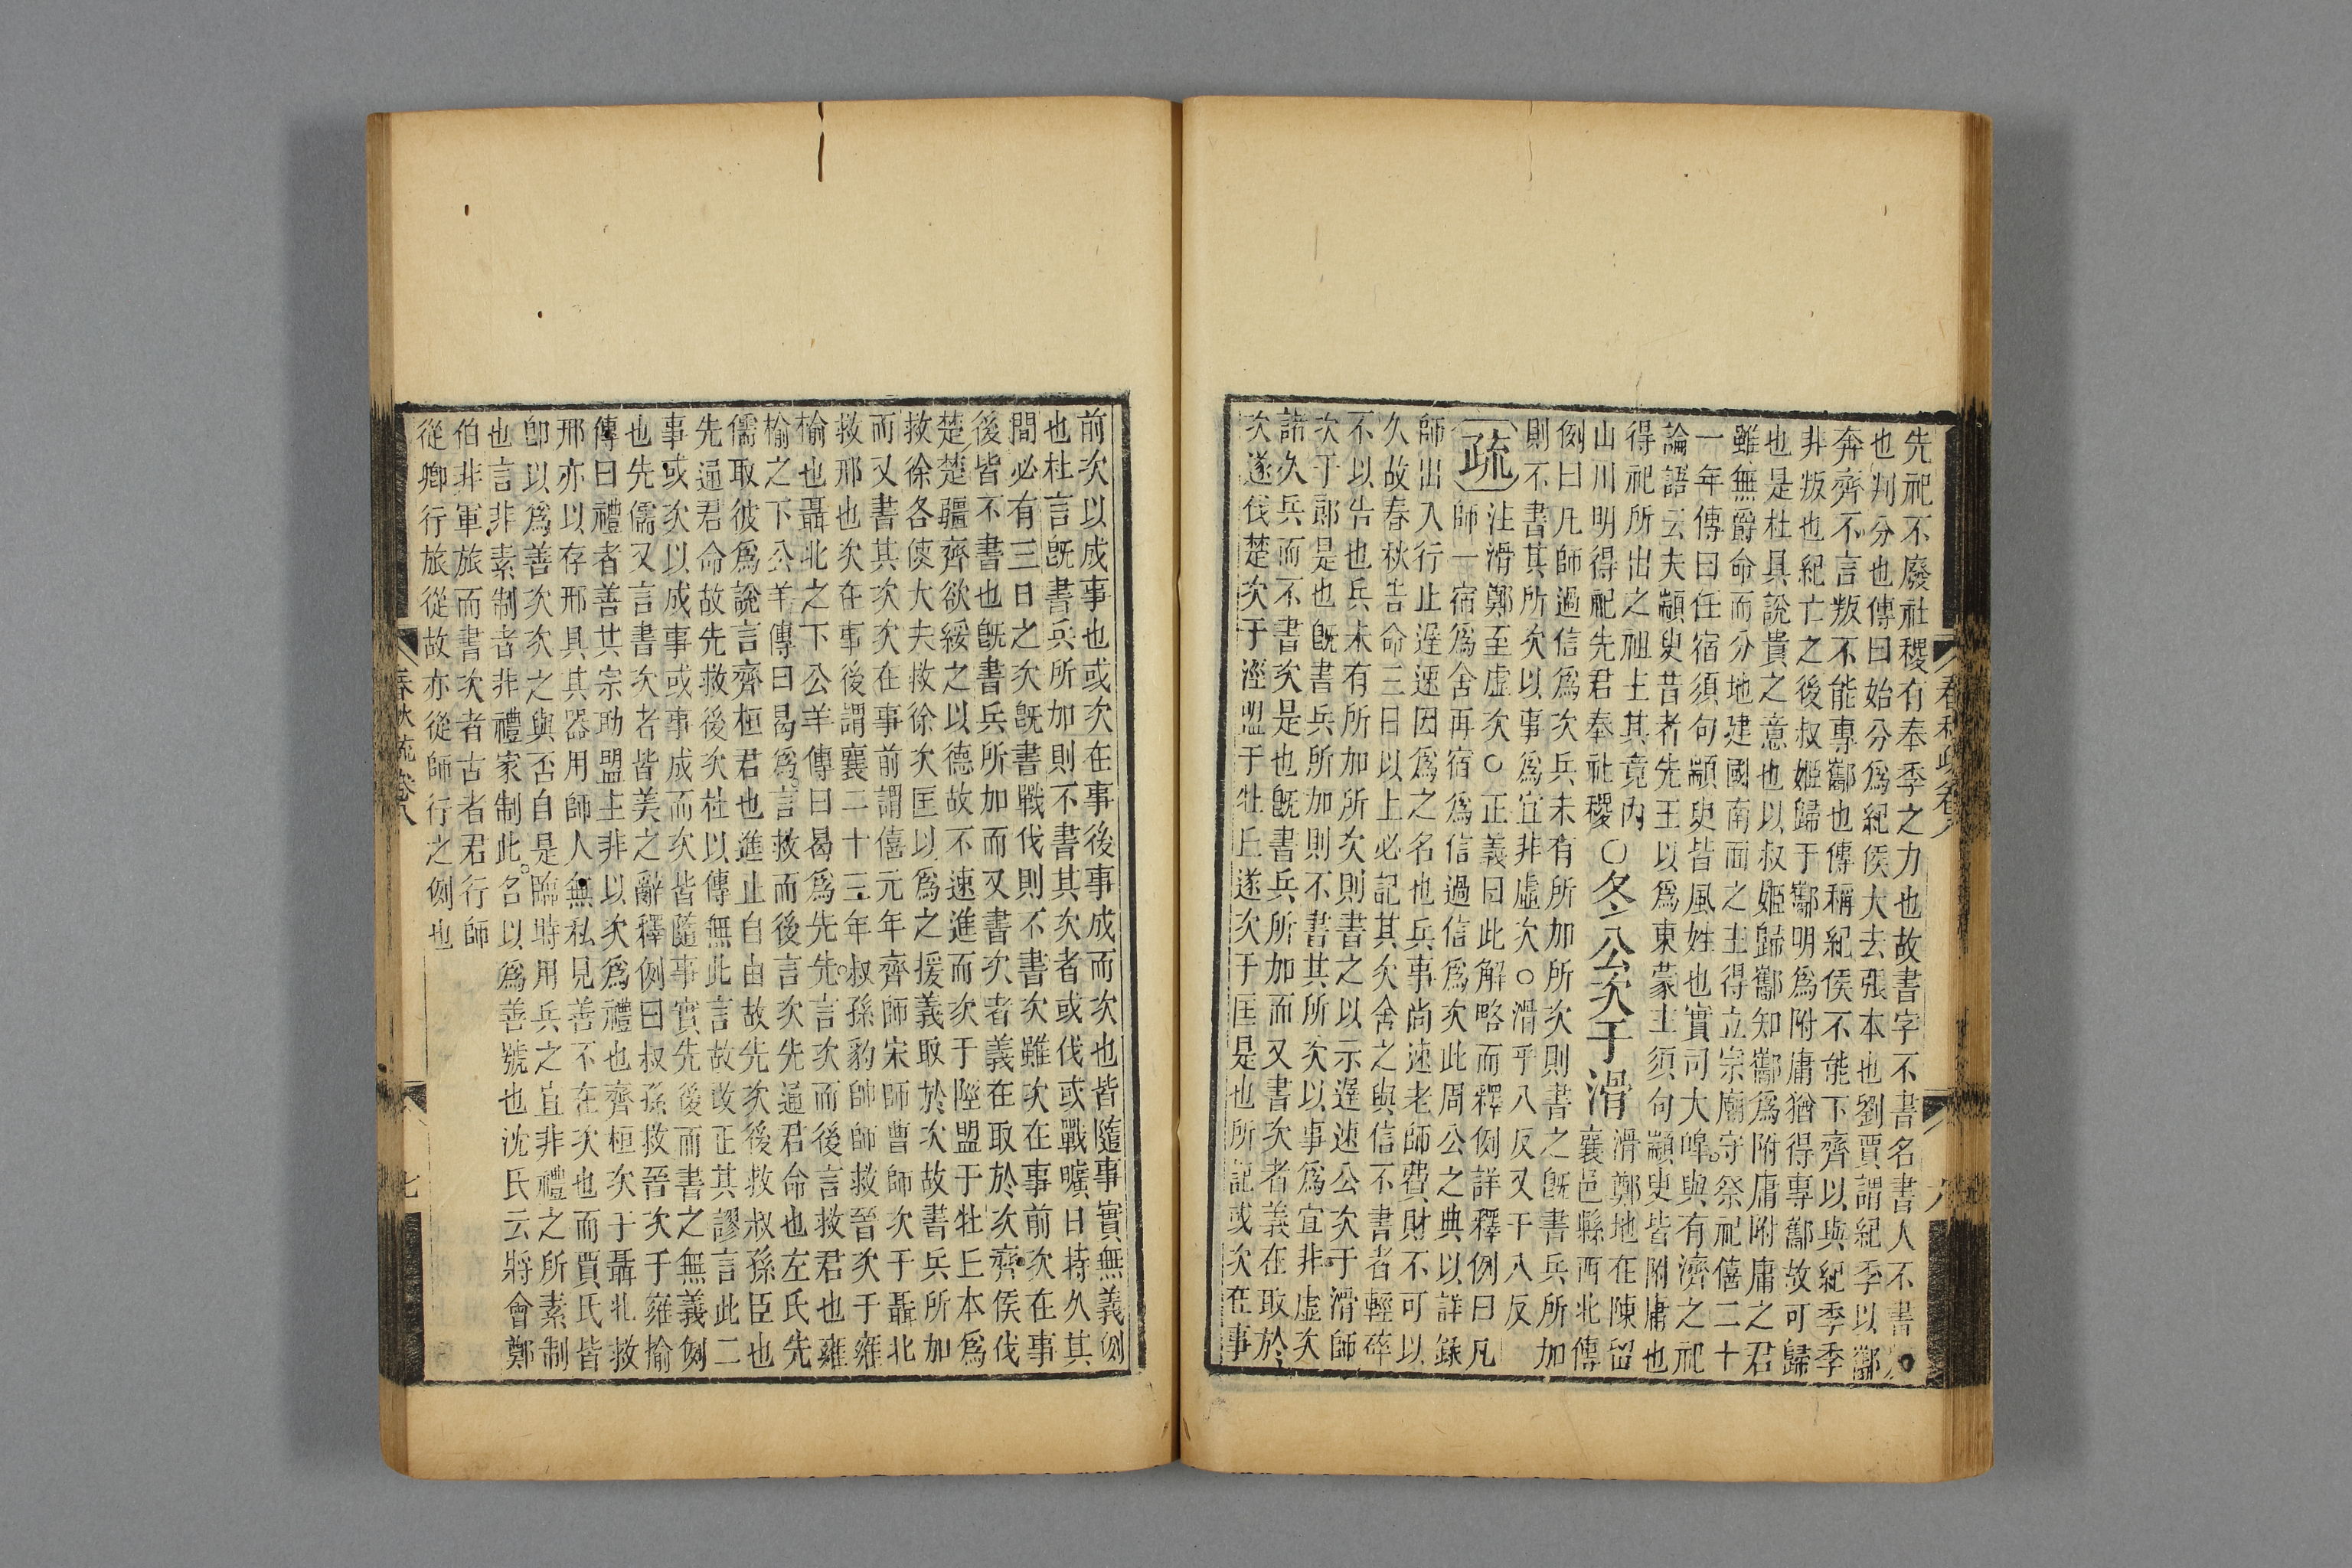 先祀不廢社稷有奉季之力也故書字不書名書人不書
也判分也傳曰始分爲紀侯大去張本也劉賈謂紀季以酅
奔齊不言叛不能專酅也傳稱紀侯不能下齊以與紀季季
非叛也紀亡之後叔姬歸于酅明爲附庸猶得專酅故可歸
也是杜具說貴之意也以叔姬歸酅知酅爲附庸附庸之君
雖無爵命而分地建國南面之主得立宗廟守祭祀僖二十
一年傳曰任宿須句顓臾皆風姓也實司大皡與有濟之祀
論語云夫顓臾昔者先王以爲東蒙主須句顓臾皆附庸也
得祀所出之祖主其竟內
山川明得祀先君奉社稷
〇冬公次于滑
滑鄭地在陳留
襄邑縣西北傳
例曰凡師過信爲次兵未有所加所次則書之旣書兵所加
則不書其所次以事爲宜非虛次〇滑乎八反又于八反
疏
注滑鄭至虛次〇正義曰此解略而釋例詳釋例曰凡
師一宿爲舍再宿爲信過信爲次此周公之典以詳錄
師出入行止遲速因爲之名也兵事尚速老師費財不可以
久故春秋告命三日以上必記其次舍之與信不書者輕碎
不以告也兵未有所加所次則書之以示遲速公次于滑師
次于郎是也旣書兵所加則不書其所次以事爲宜非虛次
諸久兵而不書次是也旣書兵所加而又書次者義在取於
次遂伐楚次于涇盟于牡丘遂次于匡是也所記或次在事
前次以成事也或次在事後事成而次也皆隨事實無義例
也杜言旣書兵所加則不書其次者或伐或戰曠日持久其
間必有三日之次旣書戰伐則不書次雖次在事前次在事
後皆不書也旣書兵所加而又書次者義在取於次齊侯伐
楚楚疆齊欲綏之以德故不速進而次于陘盟于牡丘本爲
救徐各使大夫救徐次匡以爲之援義取於次故書兵所加
而又書其次次在事前謂僖元年齊師宋師曹師次于聶北
救邢也次在事後謂襄二十三年叔孫豹帥師救晉次于雍
榆也聶北之下公羊傳曰曷爲先言次而後言救君也雍
榆之下公羊傳曰曷爲先言救而後言次先通君命也左氏先
儒取彼爲說言齊桓君也進止自由故先次後救叔孫臣也
先通君命故先救後次杜以傳無此言故改正其謬言此二
事或次以成事或事成而次皆隨事實先後而書之無義例
也先儒又言書次者皆美之辭釋例曰叔孫救晉次于雍榆
傳曰禮者善其宗助盟主非以次爲禮也齊桓次于聶北救
邢亦以存邢具其器用師人無私見善不在次也而賈氏皆
卽以爲善次次之與否自是臨時用兵之宜非禮之所素制
也言非素制者非禮家制此名以爲善號也沈氏云將會鄭
伯非軍旅而書次者古者君行師
從卿行旅從故亦從師行之例也
春秋疏卷八
七